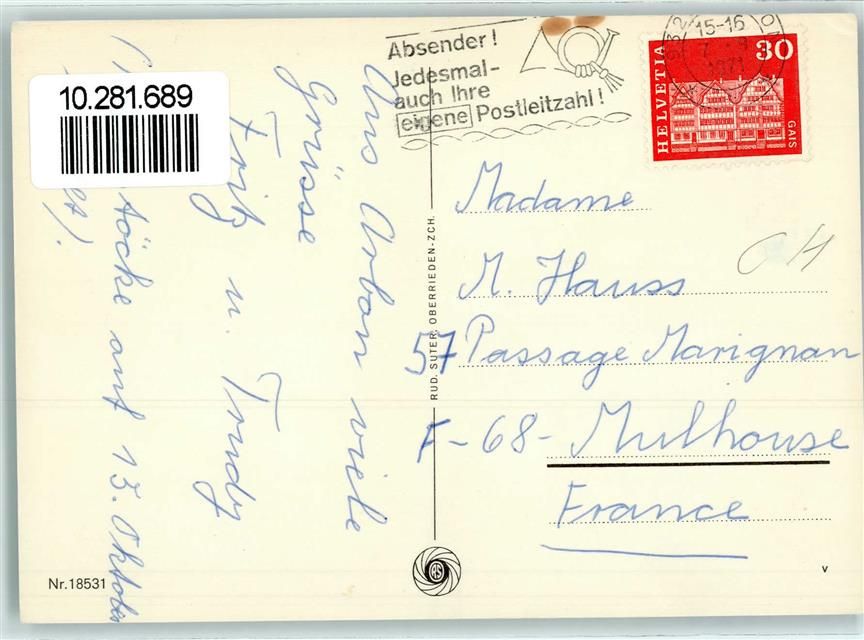 10.281.689
Absender!
Jedesmal-
auch Ihre
eigene Postleitzahl!
15-16
1971
HELVETIA
30
GAIS
Aus Arbon viele
Grüsse
Fritz u. Trudy
töcke auf 13. Oktober
RUD. SUTER, OBERRIEDEN-ZCH.
Madame
M. Hauss
57 Passage Marignan
F-68- Mulhouse
France
CH
Nr.18531
v